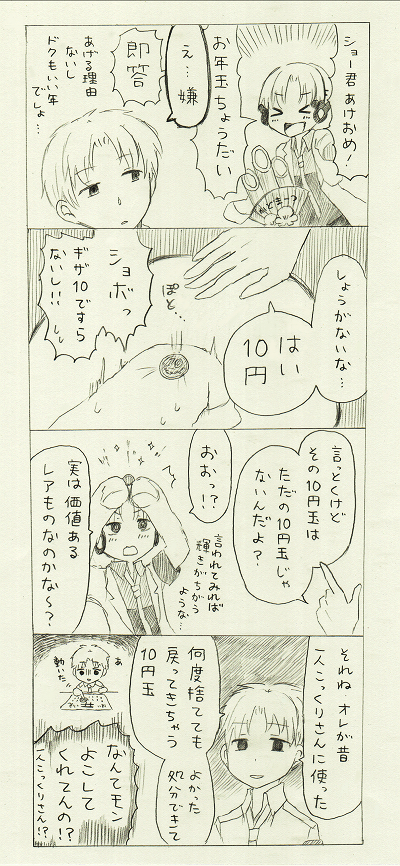 ショー君あけおめ!
お年玉ちょうだい
え…嫌
即答
あげる理由
ないし
ドクもいい年
でしょ…
しょうがないな…
はい
10円
ぽと…
ショボっ
ギザ10ですら
ないし!!
言っとくけど
その10円玉は
ただの10円玉じゃ
ないんだよ?
おおっ!?
言われてみれば
輝きがちがう
ような…
実は価値ある
レアものなのかな〜?
それね オレが昔
一人こっくりさんに使った
何度捨てても
戻ってきちゃう
10円玉
よかった
処分できて
あ
動いた
なんてモン
よこして
くれてんの!?
一人こっくりさん!?